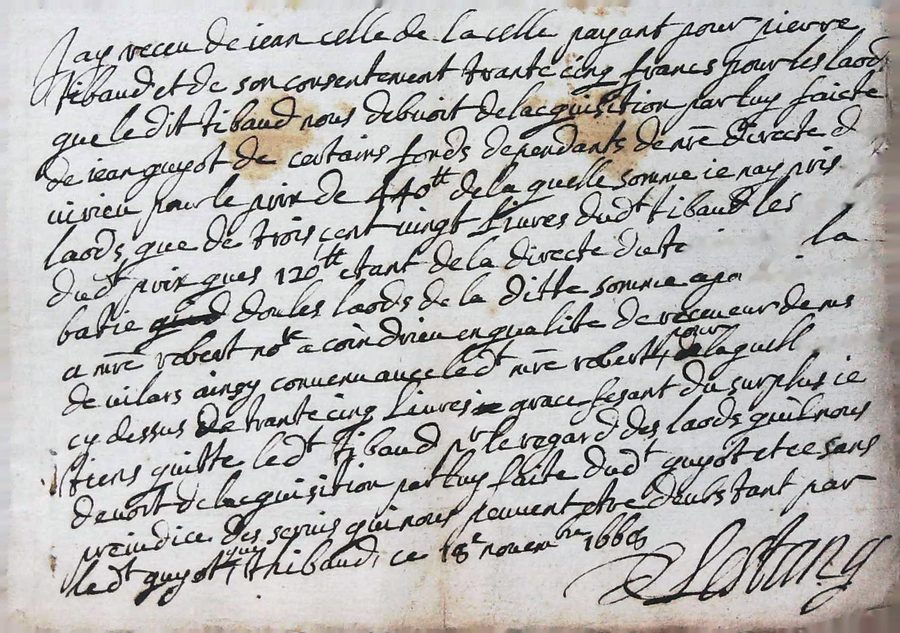 Jay receu de jean celle de la celle payant pour pierre
tibaud et de son consentement trante cinq francs pour les laods
que ledit tibaud nous debuoit de lacquisition par luy faicte
de jean guyot de certains fonds dependants de nre directe d
virieu pour le prix de 440tt de la quelle somme je nay pris
laods que de trois cent vingt livres dudt tibaud les
dudt prix ques 120tt etant de la directe du la
batie dou les laods de la ditte somme
a mre robert nore a coindrieu en qualite de receveur de
de vilars ainsy convenu avec ledt mre robert pour laquell
cy dessus de trante cinq livres grace fesant du surplus je
tiens quitte ledt tibaud pr le regard des laods quil nous
devoit de lacquisition par luy faite dudt guyot et ce sans
preiudice des servis qui nous peuvent etre deubs tant par
ledt guyot que thibaud, ce 18e novembre 1668
Lestang